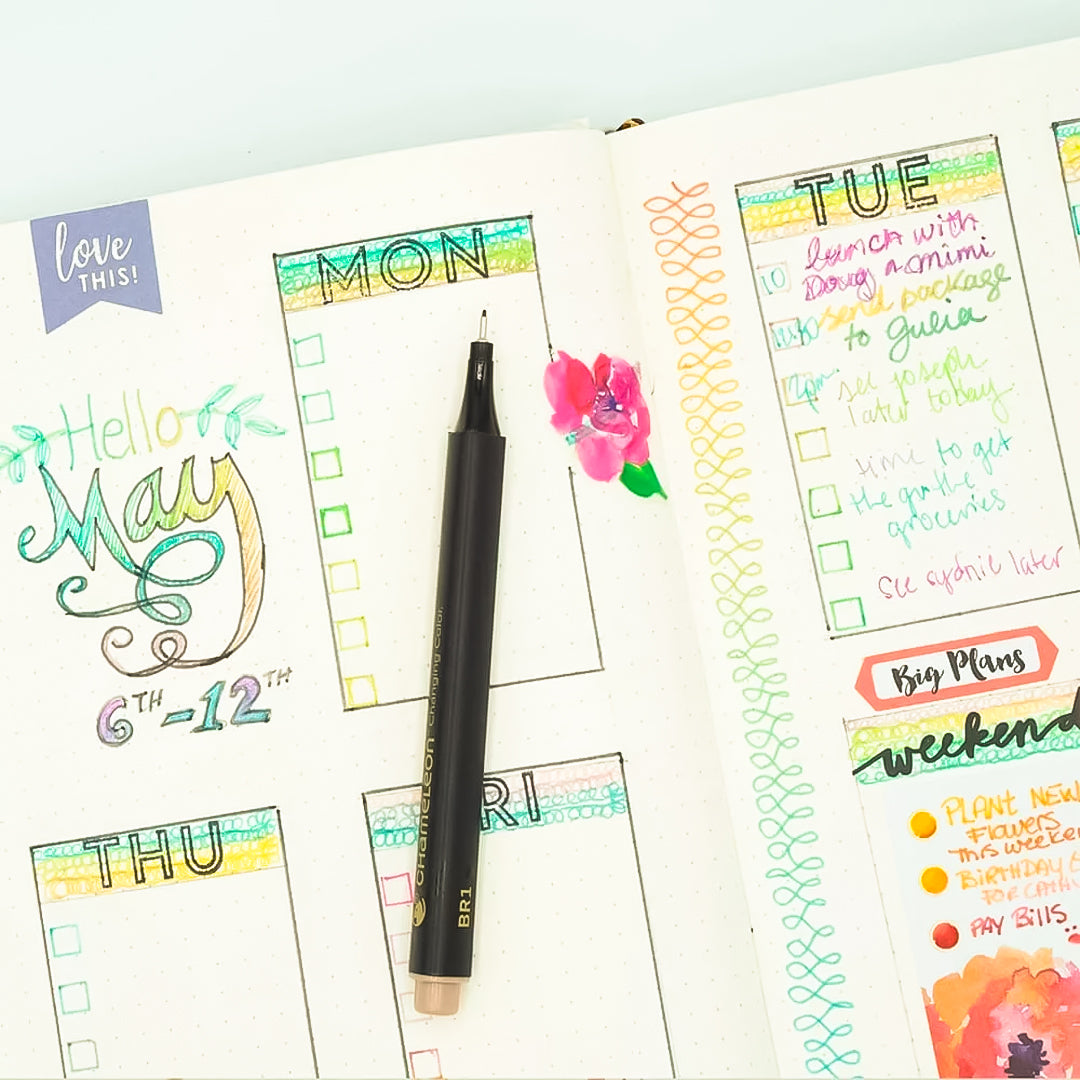 love
THIS!
Hello
May
6TH-12TH
MON
THU
RI
CHAMELEON Changing Color.
BR1
TUE
10
lunch with
Doug n mimi
send package
to Gulia
2pm
see joseph
later today
time to get
the
groceries
see sydnie later
Big Plans
weekend
PLANT NEW
Flowers
This weeken
BIRTHDAY
FOR CATHY
PAY Bills..